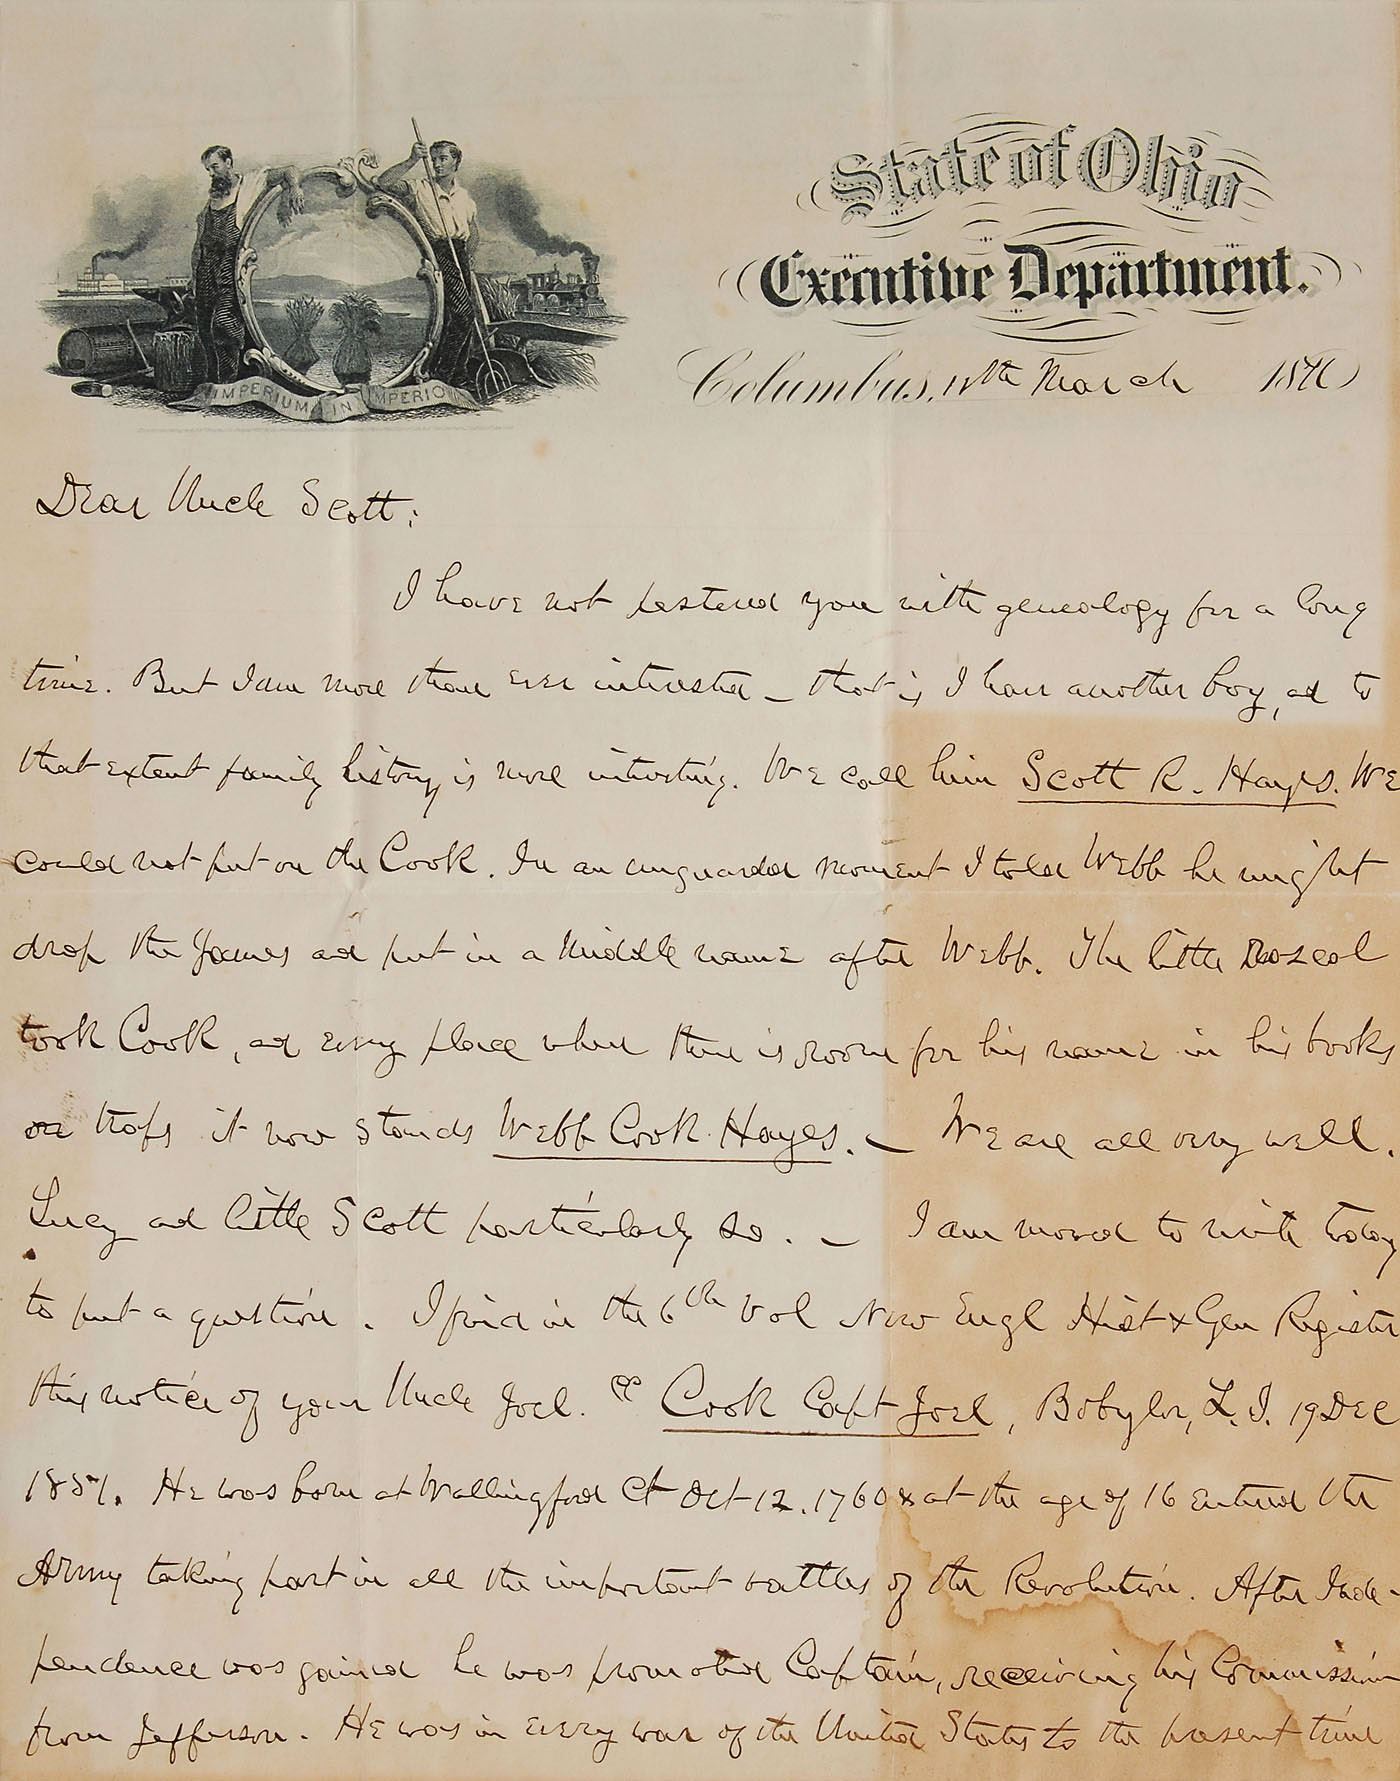 IMPERIUM IN IMPERIO
State of Ohio
Executive Department.
Columbus, March 1871
Dear Uncle Scott:
I have not pestered you with genealogy for a long
time. But I am more than ever interested – that is I have another boy, and to
that extent family history is more interesting. We call him Scott R. Hayes. We
could not put on the Cook. In an unguarded moment I told Webb he might
drop the James and put in a middle name after Webb. The little rascal
took Cook, and every place where there is room for his name in his books
or traps it now stands Webb Cook Hayes. – We are all very well.
Lucy and little Scott particularly so. – I am moved to write today
to put a question. I find in the 6th Vol New Engl Hist & Gen Register
this notice of your Uncle Joel. "Cook Capt Joel, Babylon, L. I. 19 Dec
1851. He was born at Wallingford Ct Oct 12. 1760 & at the age of 16 entered the
Army taking part in all the important battles of the Revolution. After Inde-
pendence was gained he was promoted Captain, receiving his Commission
from Jefferson. He was in every war of the United States to the present time